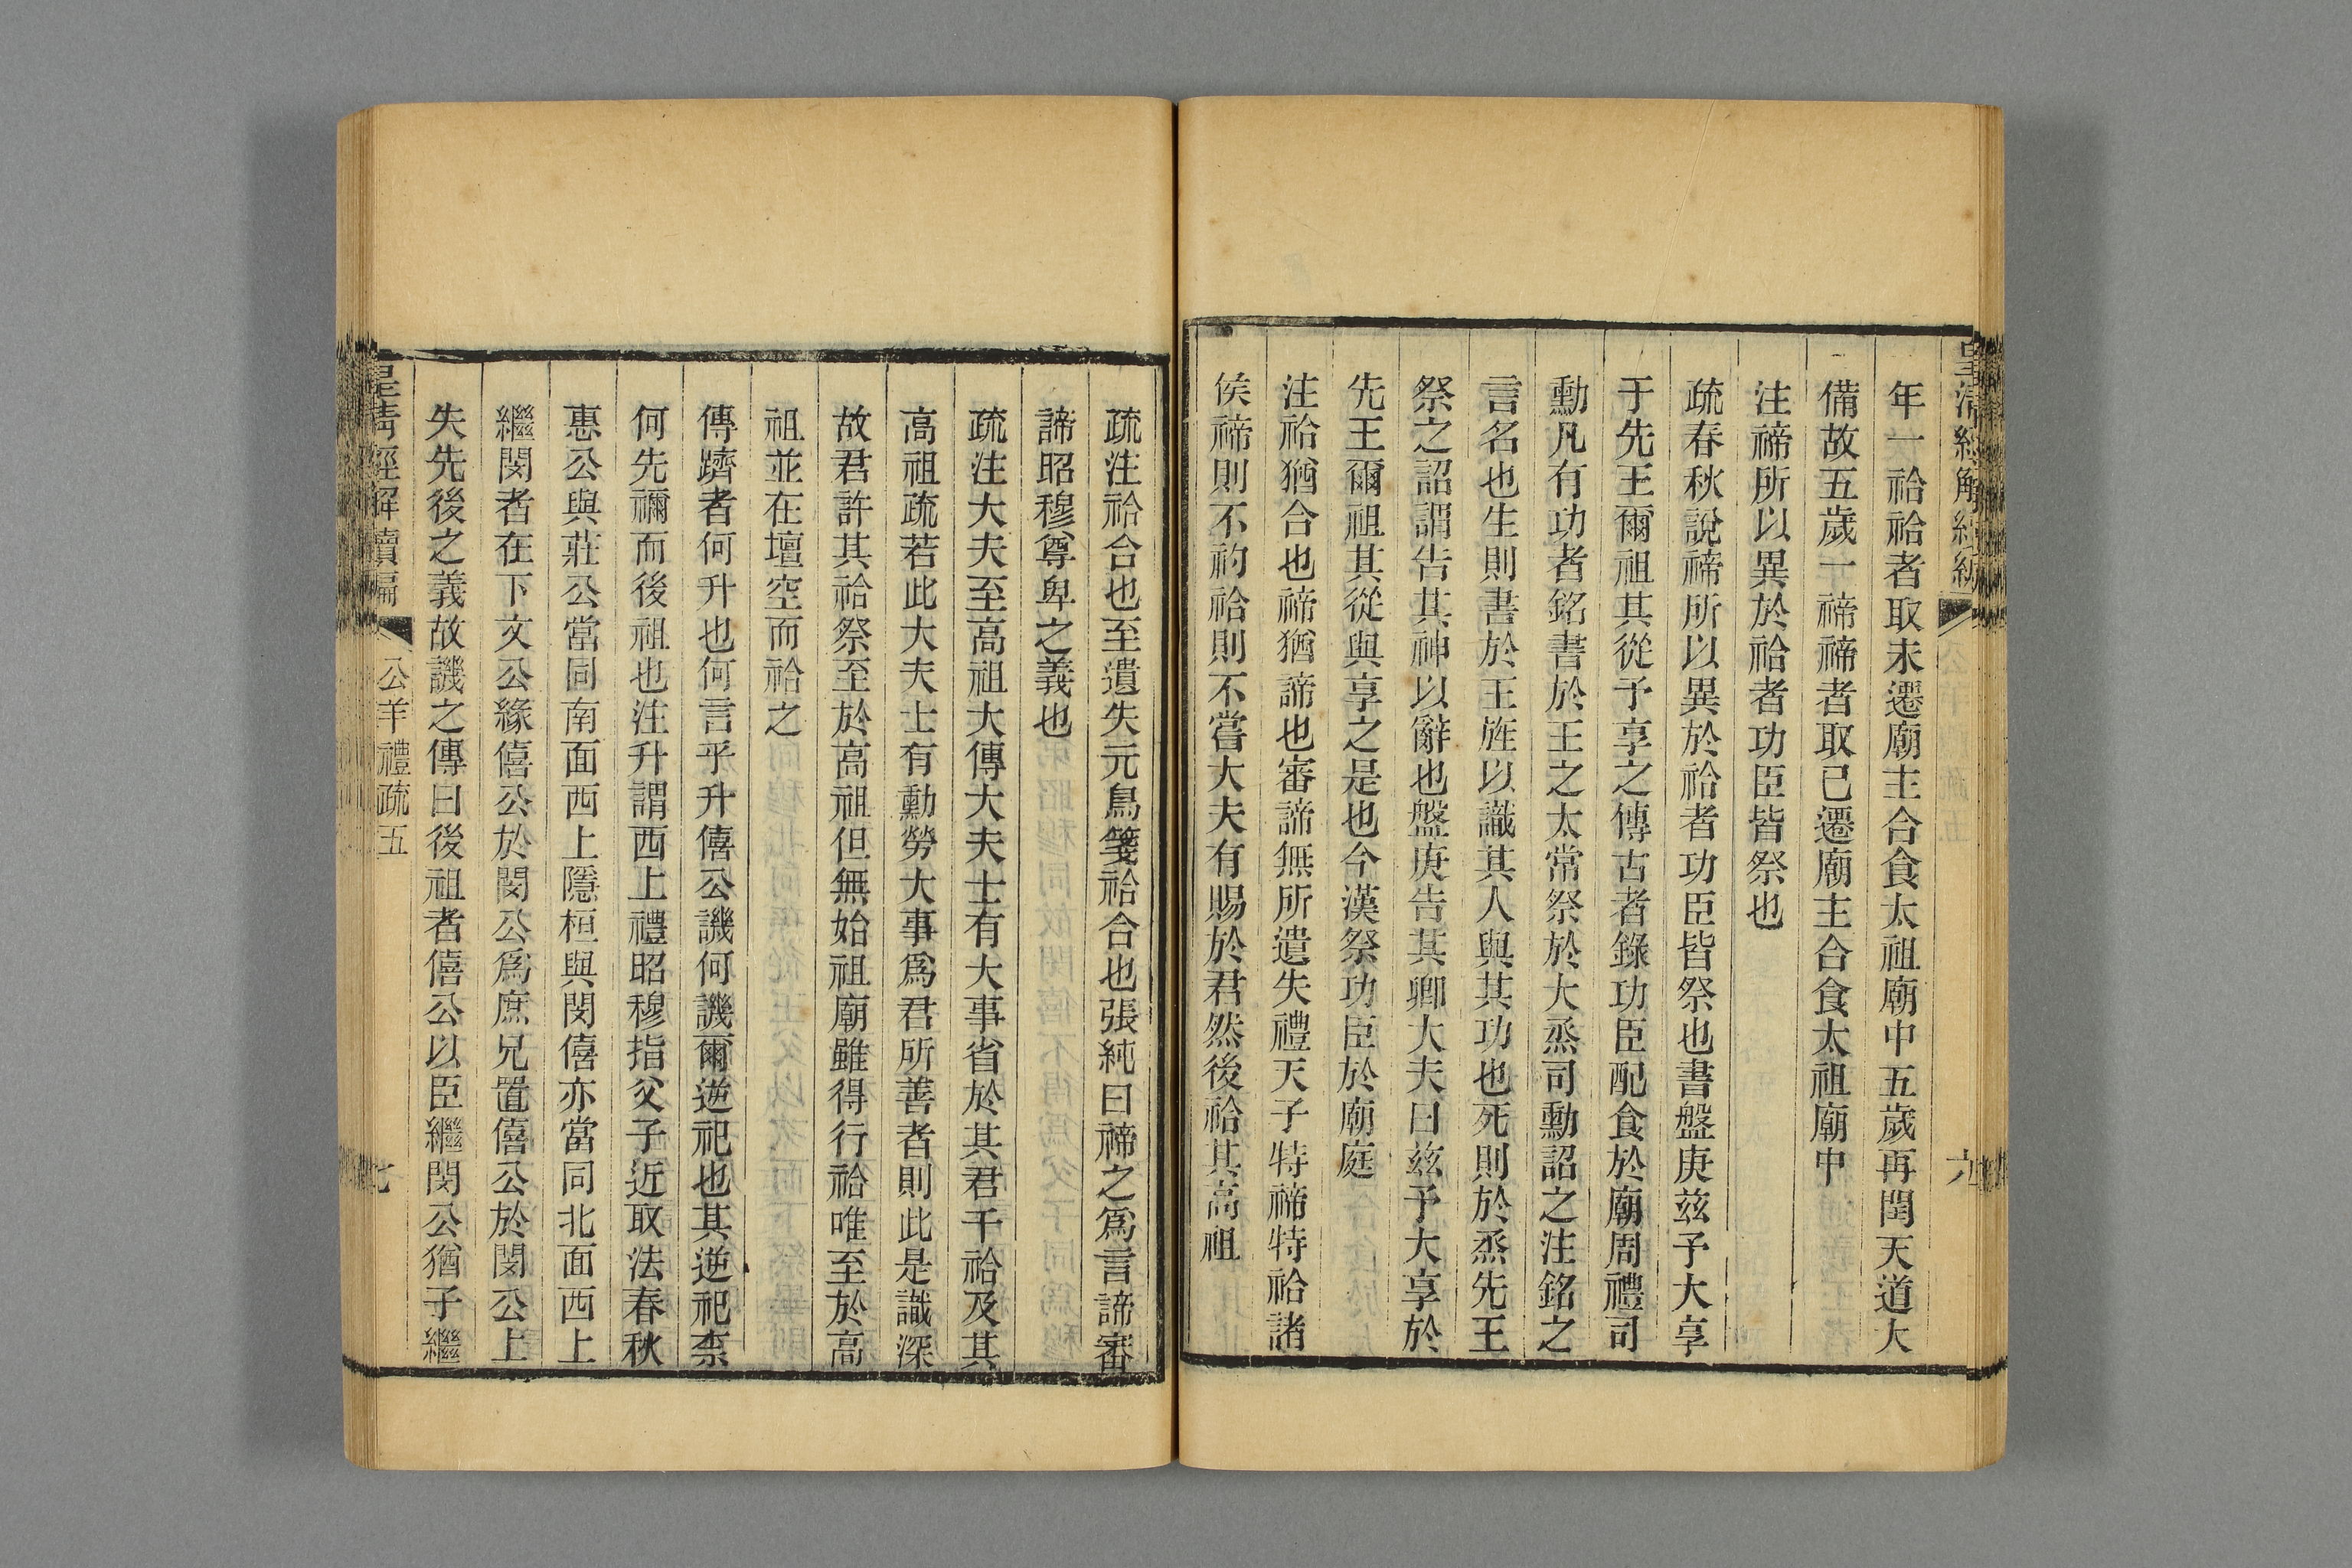 年一祫祫者取未遷廟主合食太祖廟中五歲再閏天道大
備故五歲一禘禘者取已遷廟主合食太祖廟中
注禘所以異於祫者功臣皆祭也
疏春秋說禘所以異於祫者功臣皆祭也書盤庚兹予大享
于先王爾祖其從予享之傳古者錄功臣配食於廟周禮司
勳凡有功者銘書於王之太常祭於大烝司勳詔之注銘之
言名也生則書於王旌以識其人與其功也死則於烝先王
祭之詔謂告其神以辭也盤庚告其卿大夫曰兹予大享於
先王爾祖其從與享之是也今漢祭功臣於廟庭
注祫猶合也禘猶諦也審諦無所遺失禮天子特禘特祫諸
侯禘則不礿祫則不嘗大夫有賜於君然後祫其高祖
疏注祫合也至遺失元鳥箋祫合也張純曰禘之爲言諦審
諦昭穆尊卑之義也
疏注大夫至高祖大傳大夫士有大事省於其君干祫及其
高祖疏若此大夫士有勳勞大事爲君所善者則此是識深
故君許其祫祭至於高祖但無始祖廟雖得行祫唯至於高
祖並在壇空而祫之
傳躋者何升也何言乎升僖公譏何譏爾逆祀也其逆祀柰
何先禰而後祖也注升謂西上禮昭穆指父子近取法春秋
惠公與莊公當同南面西上隱桓與閔僖亦當同北面西上
繼閔者在下文公緣僖公於閔公爲庶兄置僖公於閔公上
失先後之義故譏之傳曰後祖者僖公以臣繼閔公猶子繼
皇清經解續編
公羊禮疏五
七